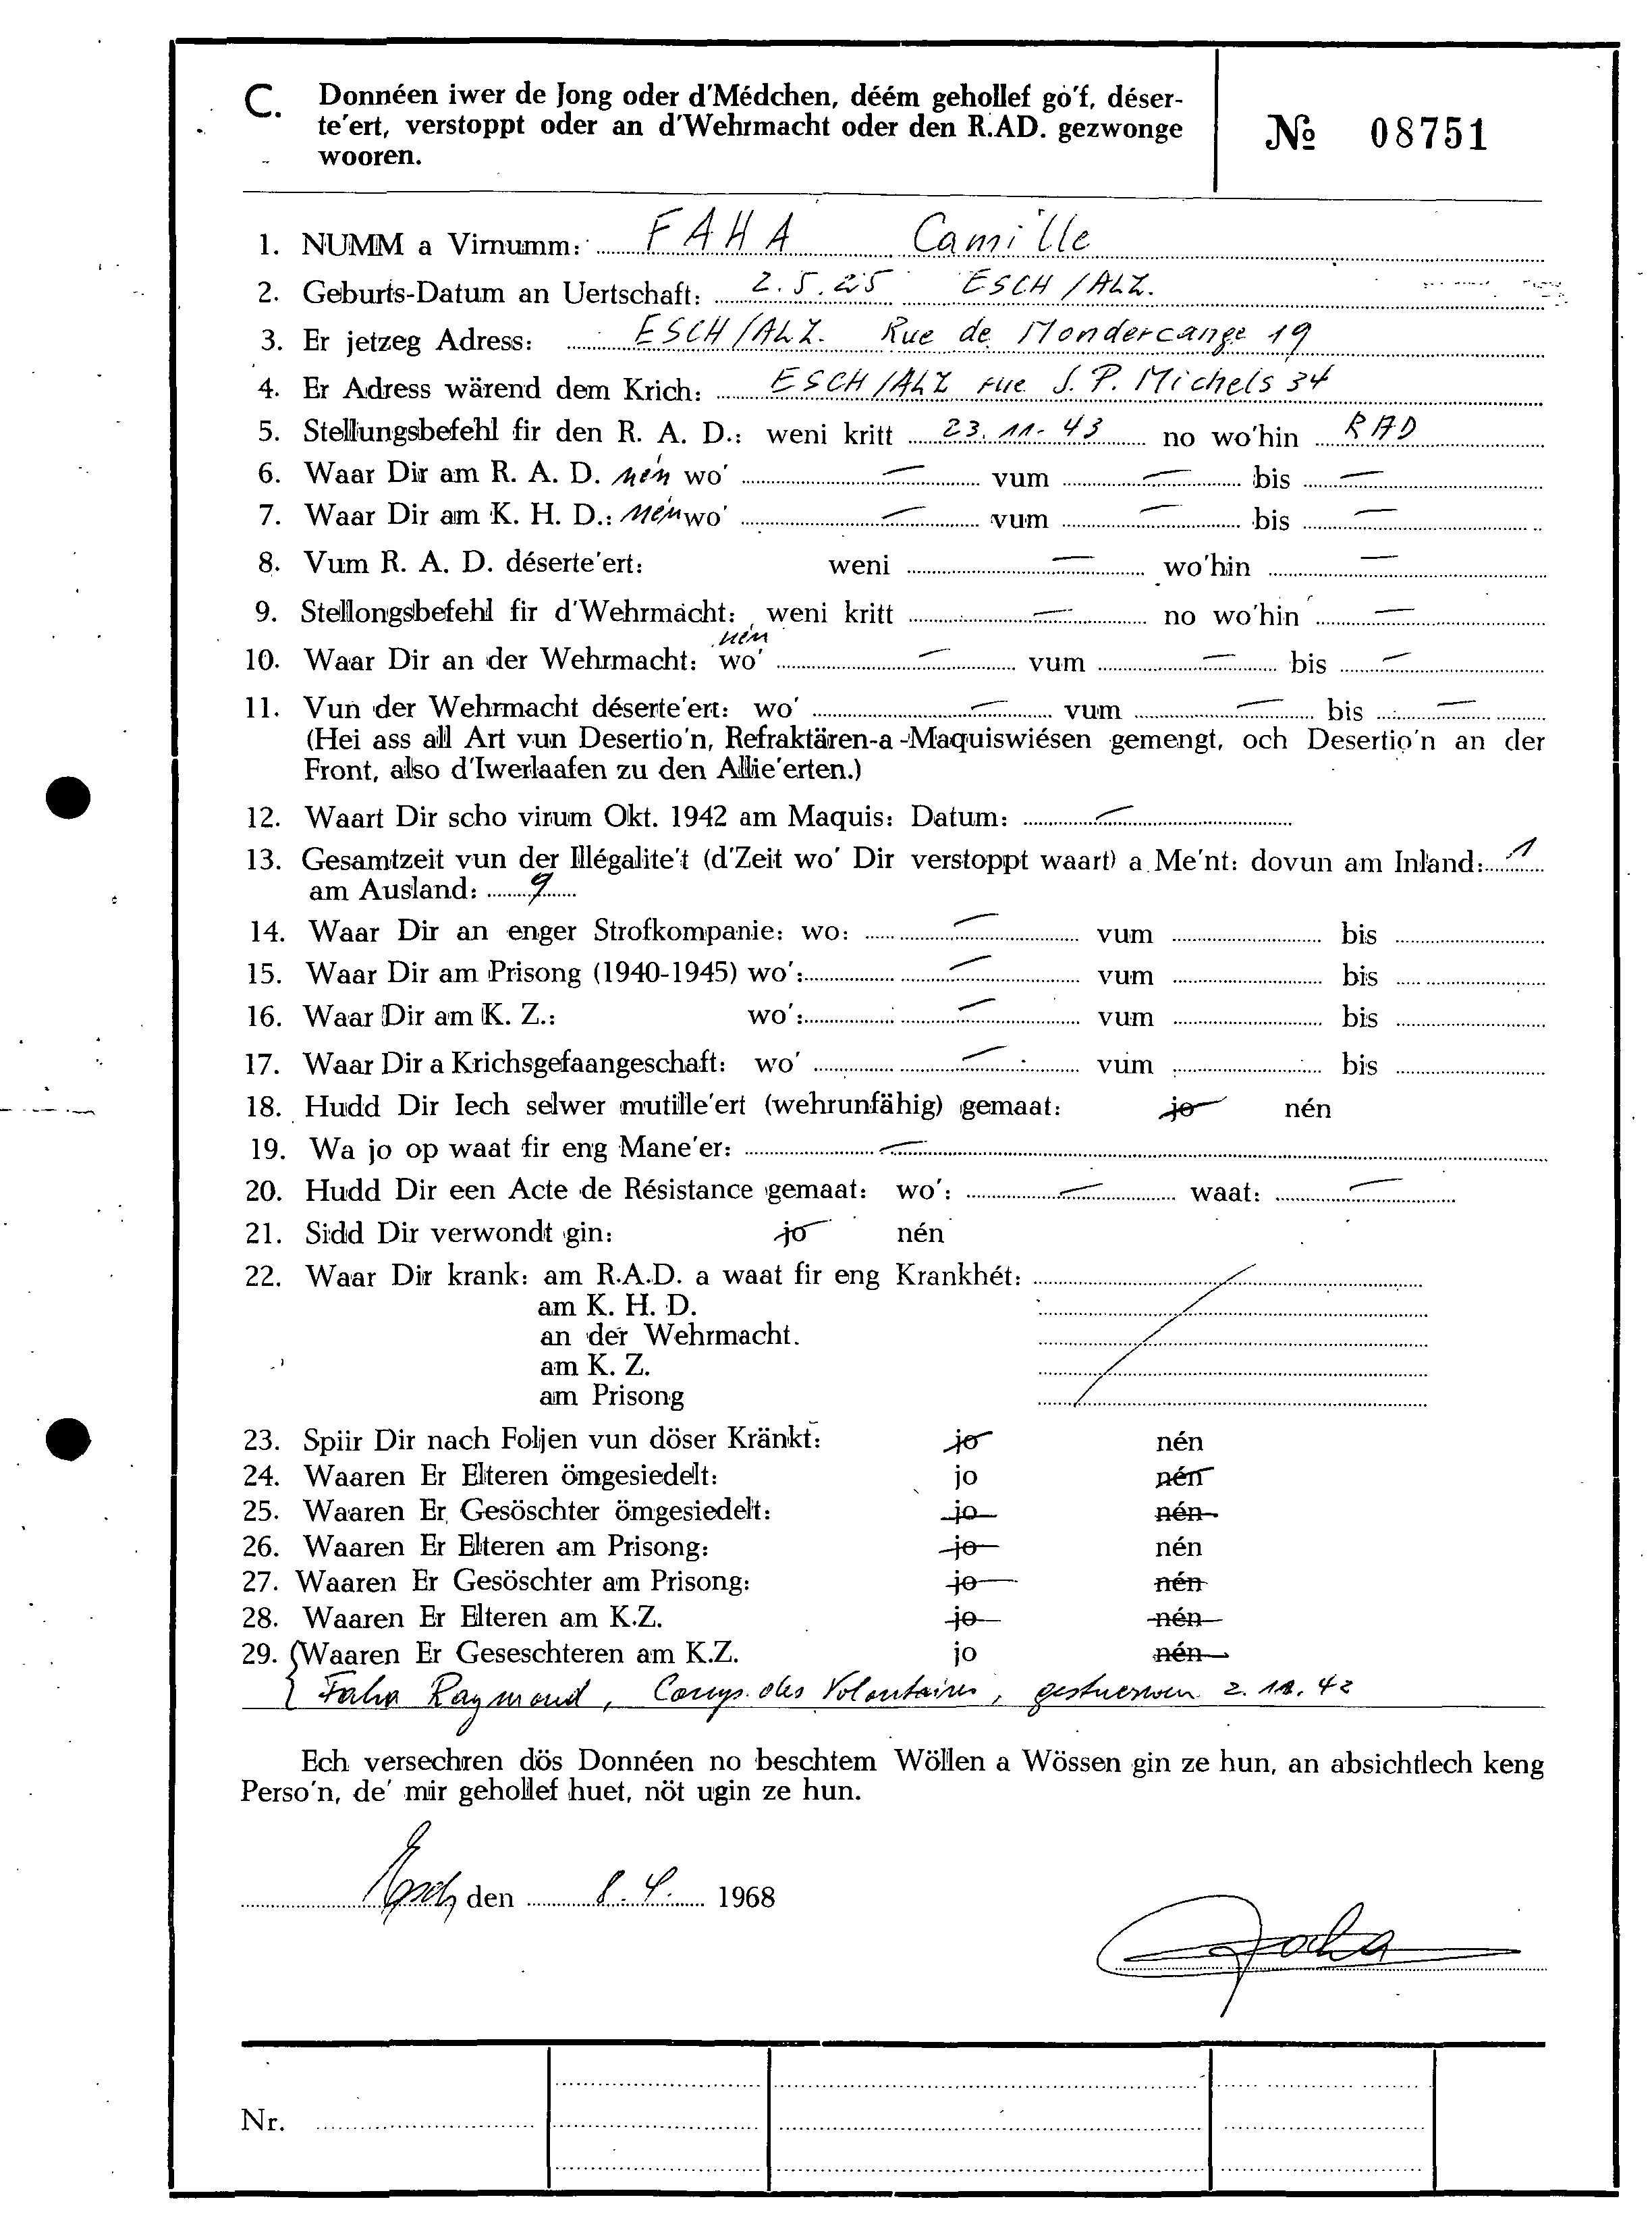 C. Donnéen iwer de Jong oder d'Médchen, déém gehollef go'f, déser-
te'ert, verstoppt oder an d'Wehrmacht oder den R.AD. gezwonge
wooren.
№ 08751
1. NUMM a Virnumm: FAHA Camille
2. Geburts-Datum an Uertschaft: 2.5.25 ESCH/ALZ.
3. Er jetzeg Adress: ESCH/ALZ. Rue de Mondercange 19
4. Er Adress wärend dem Krich: ESCH/ALZ rue J. P. Michels 34
5. Stellungsbefehl fir den R. A. D.: weni kritt 23.11.43 no wo'hin RAD
6. Waar Dir am R. A. D. nén wo' — vum — bis —
7. Waar Dir am K. H. D.: nén wo' — vum — bis —
8. Vum R. A. D. déserte'ert: weni — wo'hin —
9. Stellongsbefehl fir d'Wehrmacht: weni kritt — no wo'hin —
nén
10. Waar Dir an der Wehrmacht: wo' — vum — bis —
11. Vun der Wehrmacht déserte'ert: wo' — vum — bis —
(Hei ass all Art vun Desertio'n, Refraktären-a-Maquiswiésen gemengt, och Desertio'n an der
Front, also d'Iwerlaafen zu den Allie'erten.)
12. Waart Dir scho virum Okt. 1942 am Maquis: Datum: —
13. Gesamtzeit vun der Illégalite't (d'Zeit wo' Dir verstoppt waart) a Me'nt: dovun am Inland: 1
am Ausland: 9
14. Waar Dir an enger Strofkompanie: wo: — vum bis
15. Waar Dir am Prisong (1940-1945) wo': — vum bis
16. Waar Dir am K. Z.: wo': — vum bis
17. Waar Dir a Krichsgefaangeschaft: wo' — vum bis
18. Hudd Dir Iech selwer mutille'ert (wehrunfähig) gemaat: jo nén
19. Wa jo op waat fir eng Mane'er: —
20. Hudd Dir een Acte de Résistance gemaat: wo': — waat: —
21. Sidd Dir verwondt gin: jo nén
22. Waar Dir krank: am R.A.D. a waat fir eng Krankhét:
am K. H. D.
an der Wehrmacht.
am K. Z.
am Prisong
23. Spiir Dir nach Foljen vun döser Kränkt: jo nén
24. Waaren Er Elteren ömgesiedelt: jo nén
25. Waaren Er Gesöschter ömgesiedelt: jo nén
26. Waaren Er Elteren am Prisong: jo nén
27. Waaren Er Gesöschter am Prisong: jo nén
28. Waaren Er Elteren am K.Z. jo nén
29. Waaren Er Geseschteren am K.Z. jo nén
Faha Raymond, Comp. des Volontaires, gestuerwen 2.
Ech versechren dös Donnéen no beschtem Wöllen a Wössen gin ze hun, an absichtlech keng
Perso'n, de' mir gehollef huet, nöt ugin ze hun.
Esch, den 8.4. 1968
Faha
Nr.